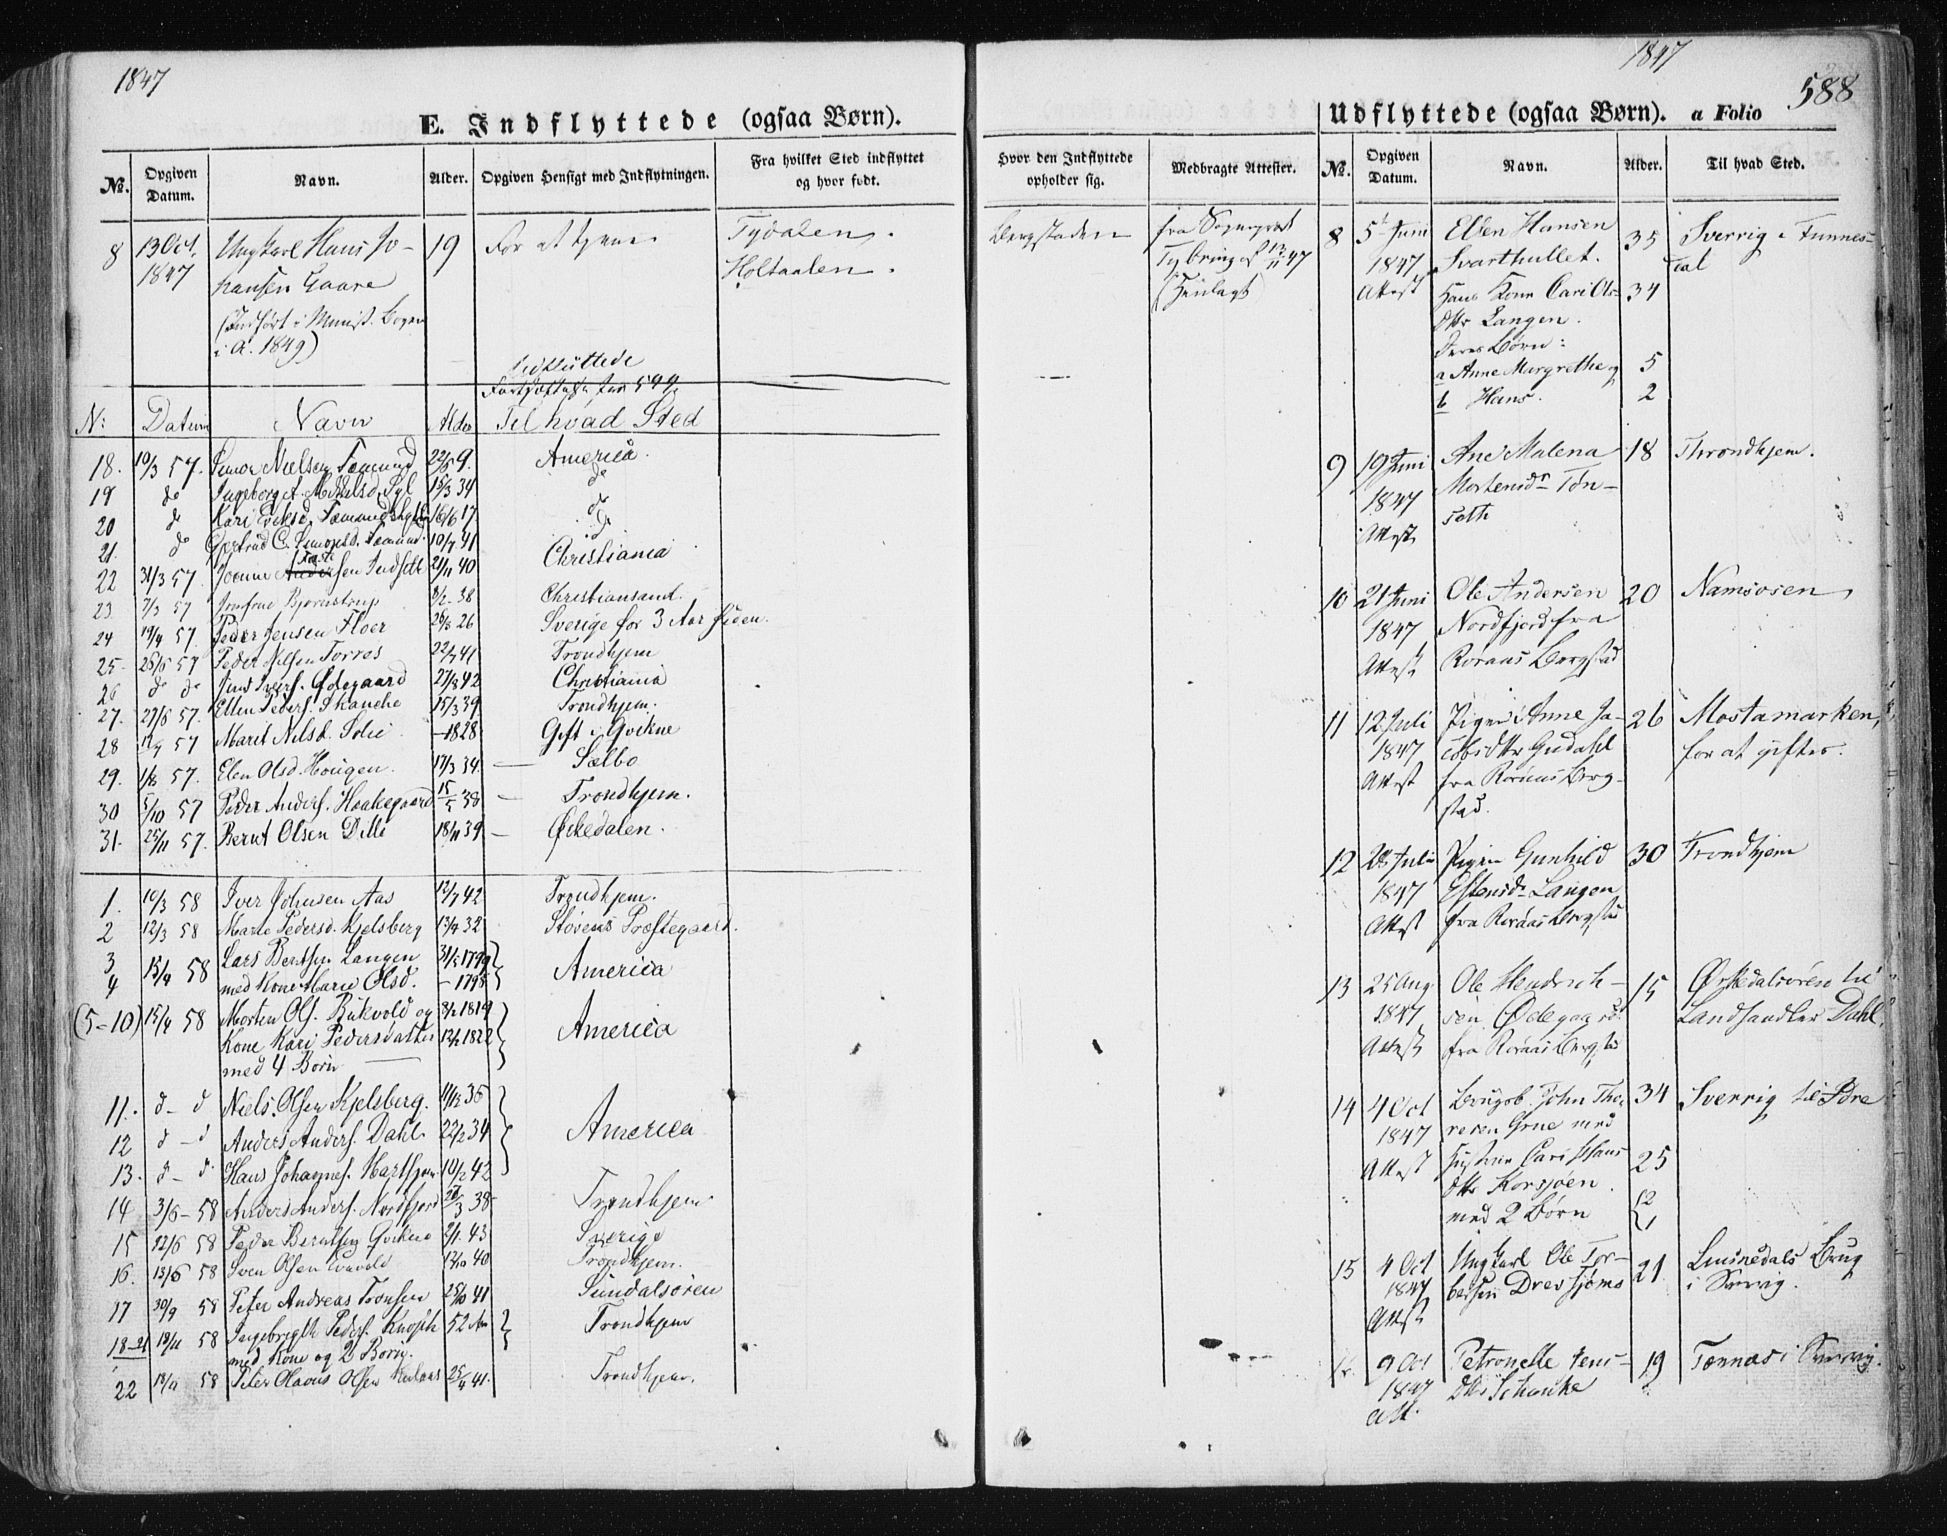 1847
E. Indflyttede (ogsaa Børn).
No. Opgiven Datum. Navn. Alder. Opgiven Hensigt med Indflytningen. Fra hvilket Sted indflyttet og hvor født.
Hvor den Indflyttede opholder sig. Medbragte Attester.
8 13 Oct. Ungkarl Hans Jo- 19 For at tjene Tydalen. Bergstaden fra Sognepræst
1847 hansen Gaare Holtaalen.
(Indført i Minist. Bogen
i A. 1849)
Udflyttede
N: Datum Navn Alder Til hvad Sted
18. 10/3 57. Simon Nielsen Fæmund 22/5 9. America.
19 do Ingeborg 15/3 34 do
20 do Kari Eriksd. 16/6 17 do
21. do Gjertrud C. Simonsd. Fæmund 10/7 41 do
22 31/3 57. Indseth 21/11 40 Christiania
23 7/3 57 Jomfrue Bjørnstrup 38 Christiansand.
24 19/4 57. Peder Jensen Floer 26/3 26 Sverige for 3 Aar siden.
25. 26/6 57 Peder Nilsen Torres 22/7 41 Trondhjem
26 do do Jens Ivers. Ødegaard 27/3 42 Christiania
27. 27/6 57. Ellen Peders. Skanche 15/3 39 Trondhjem.
28 57 Marit Nilsd. Solie -1828 Gift i Qvikne
29. 57. Elen Olsd. Hougen. 17/3 34. Sælbo
30 5/10 57 Peder Anders. Haakegaard 15/5 38 Trondhjem.
31. 25/11 57. Bernt Olsen Dille 18/11 39 Ørkedalen.
1. 10/3 58 Iver Johnsen Aas 12/7 42 Trondhjem.
2 12/3 58 Marie Pedersd. Kjelsberg 13/4 32 Støvens Præstegaard.
3 15/4 58 Lars Berthsen Langen 1799 America
4 med Kone Marie Olsd. -1795
(5-10) 15/4 58 Morten Ols. Bukvold og 1819 America
Kone Kari Pedersdatter 1822
med 4 Børn
11. d - d Niels Olsen Kjelsberg. 11/12 36
12 d - d Anders Anders. Dahl 22/2 34 America
13. d - d Hans Johannes. 10/2 42
14 3/6 - 58 Anders Anders. Nordfjord 38 Trondhjem
15 12/6 58 Peder Berntsen Qvikne 2/1. 43 Sverige
16. 13/6 58 Sven Olsen 40 Trondhjem.
17 30/9 58 Peter Andreas Tronsen 25/10 41 Sundalsøren
18-21 18/11 58 Ingebrigth Peders. 52 Aar Trondhjem
med Kone og 2 Børn.
22 18/11 58 Peter Olaus Olsen 25/4 41. Trondhjem.
1847
588
Udflyttede (ogsaa Børn). a Folio
No. Opgiven Datum. Navn. Alder. Til hvad Sted.
8 5 Juni Elsen Hansen 35 Sverrig i Funnes-
1847 Svarthullet. dal
Attest Hans Kone Cari Ols- 34
dtr Langen.
deres Børn:
a Anne Margrethe og 5
b Hans. 2
9 19 Juni Ane Malena 18 Throndhjem.
1847 Mortensdr Tøn-
Attest seth
10 21 Juni Ole Andersen 20 Namsosen
1847 Nordfjord fra
Attest Røraas Bergstad
11 12 Juli Pigen Anne Ja- 26 Mostamarken,
1847 cobsdtr Gudahl for at giftes.
Attest fra Røraas Berg-
stad.
12 28 Juli Pigen Gunhild 30 Trondhjem
1847 Estensdr Langen
Attest fra Røraas Bergstad
13 25 Aug Ole Hendrich- 15 Ørkedalsøren til
1847 sen Ødegaard Landhandler Dahl.
Attest fra Røraas Bergstad
14 4 Oct Brugsb. John Tho- 34 Sverrig til Idre
1847 resen Grue med
Attest Hustrue Cari Hans 25
dtr Korsjøen.
med 2 Børn 2
1
15 4 Oct Ungkarl Ole Tor- 21 Liusnedals Brug
1847 bersen Drevsjømo i Sverrig.
Attest
16. 9 Oct Petronelle Jens- 19 Tænnæs i Sverrig.
1847 dtr Schanke
Att.